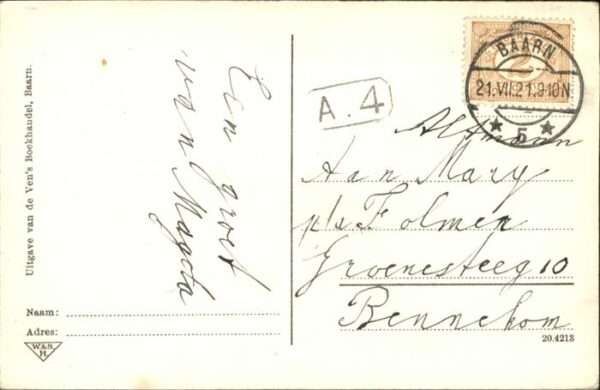 Uitgave van de Ven's Boekhandel, Baarn.
Een groet
van Magda
Naam:
Adres:
W.&S.
H
A.4
2
BAARN
21.VII.21.9-10N
5
Altmann
Aan Mary
p/a Folmer
Groenesteeg 10
Bennekom
20.4213